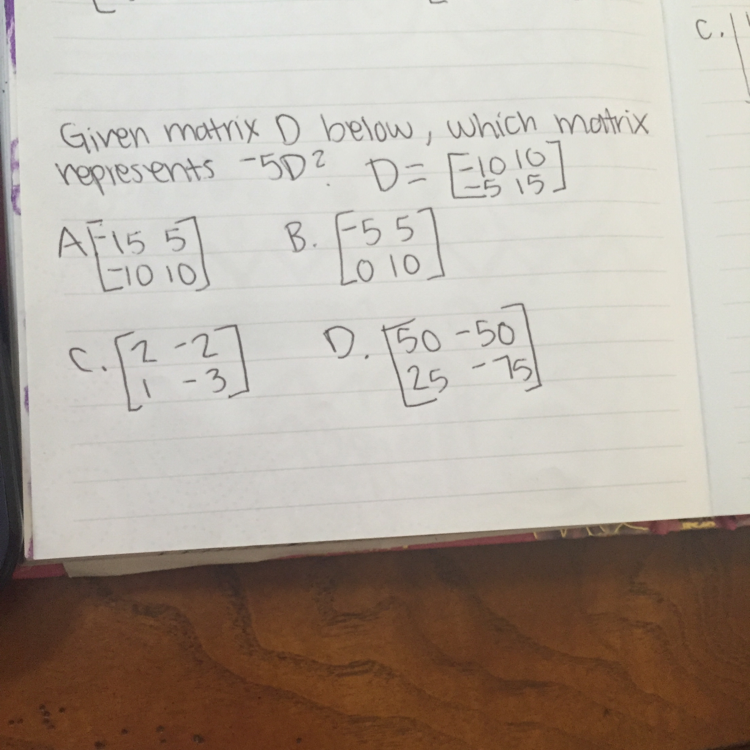 C.
Given matrix D below, which matrix
represents -5D? D= [-10 10
-5 15]
A [-15 5
-10 10]
B. [-5 5
0 10]
C. [2 -2
1 -3]
D. [50 -50
25 -75]